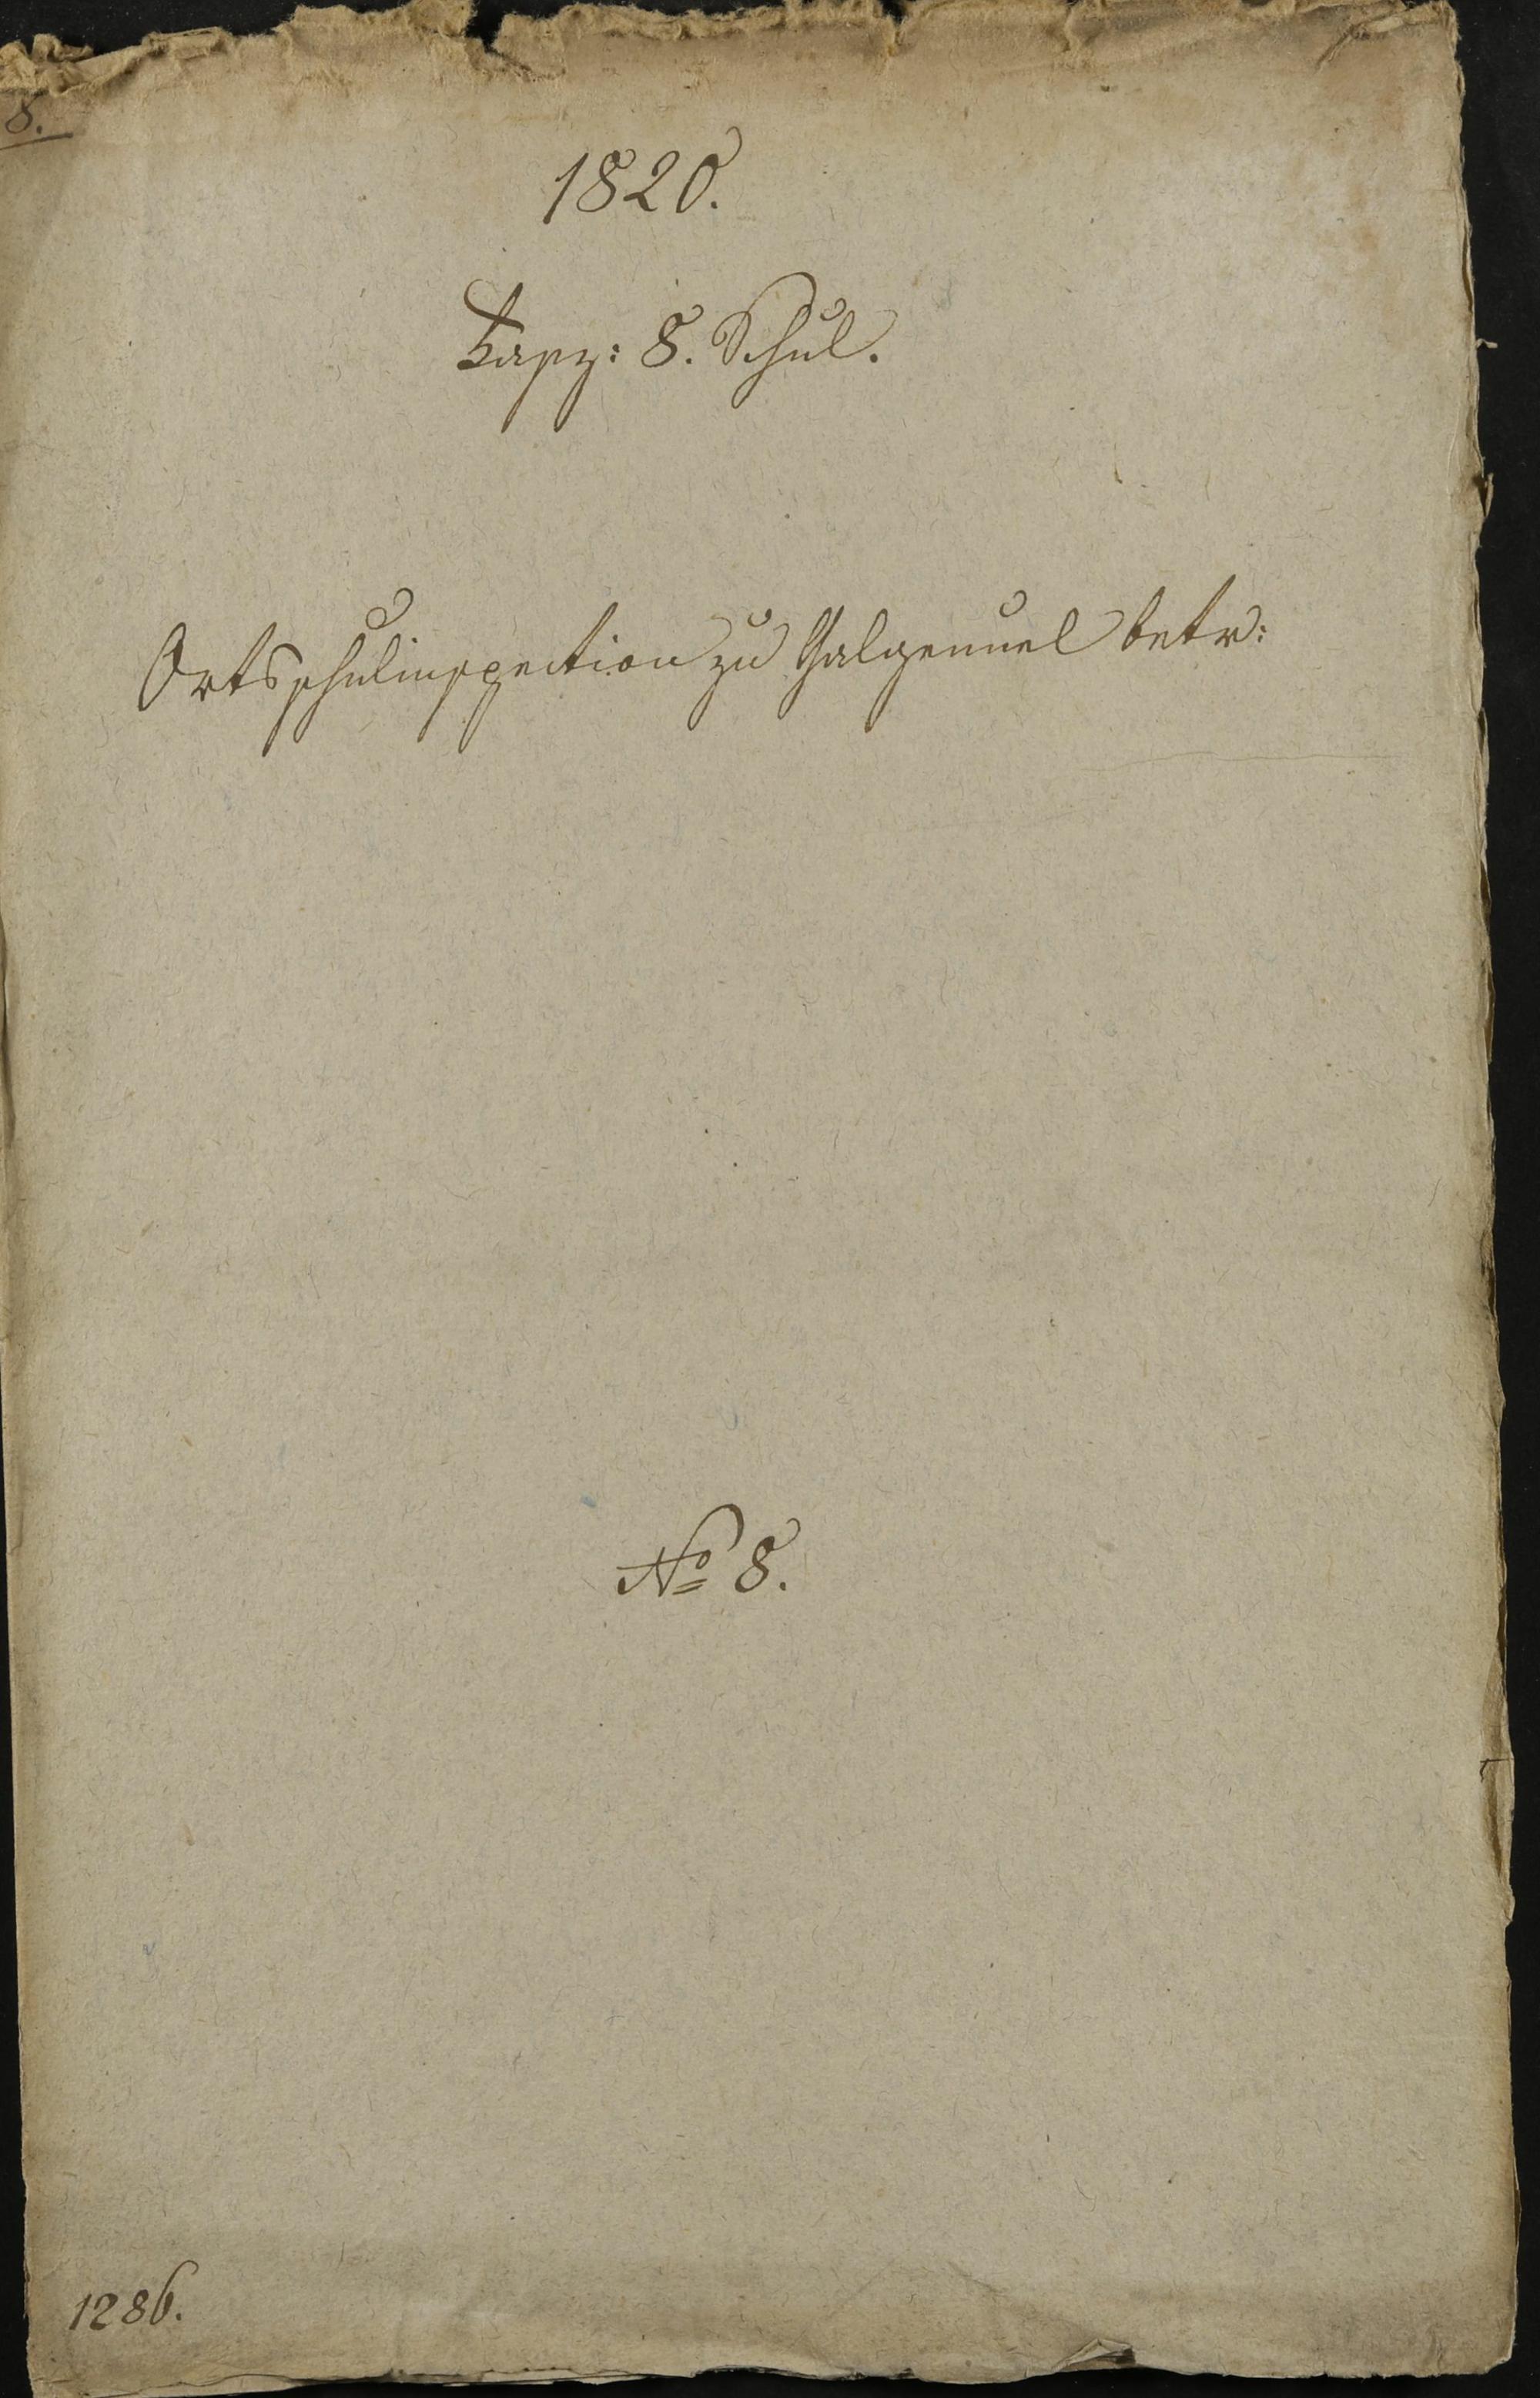 8.
1820.
Fasz: 8. Schul.
Ortsschulinspection zu Galgenuel betr:
No 8.
1286.